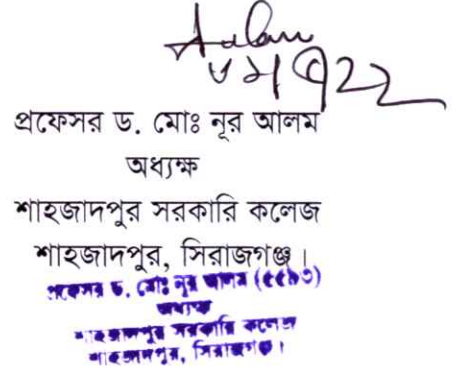 প্রফেসর ড. মোঃ নূর আলম
অধ্যক্ষ
শাহজাদপুর সরকারি কলেজ
শাহজাদপুর, সিরাজগঞ্জ।
প্রফেসর ড. মোঃ নূর আলম (৫৫৯৩)
অধ্যক্ষ
শাহজাদপুর সরকারি কলেজ
শাহজাদপুর, সিরাজগঞ্জ।